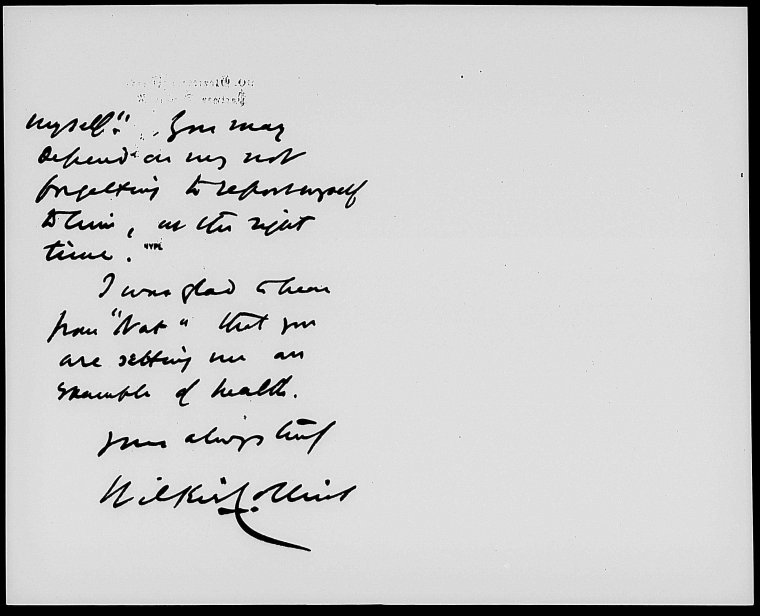 myself." You may
depend on my not
forgetting to report myself
to him, at the right
time.
I was glad to hear
from "Nat" that you
are setting me an
example of health.
Yours always truly
Wilkie Collins